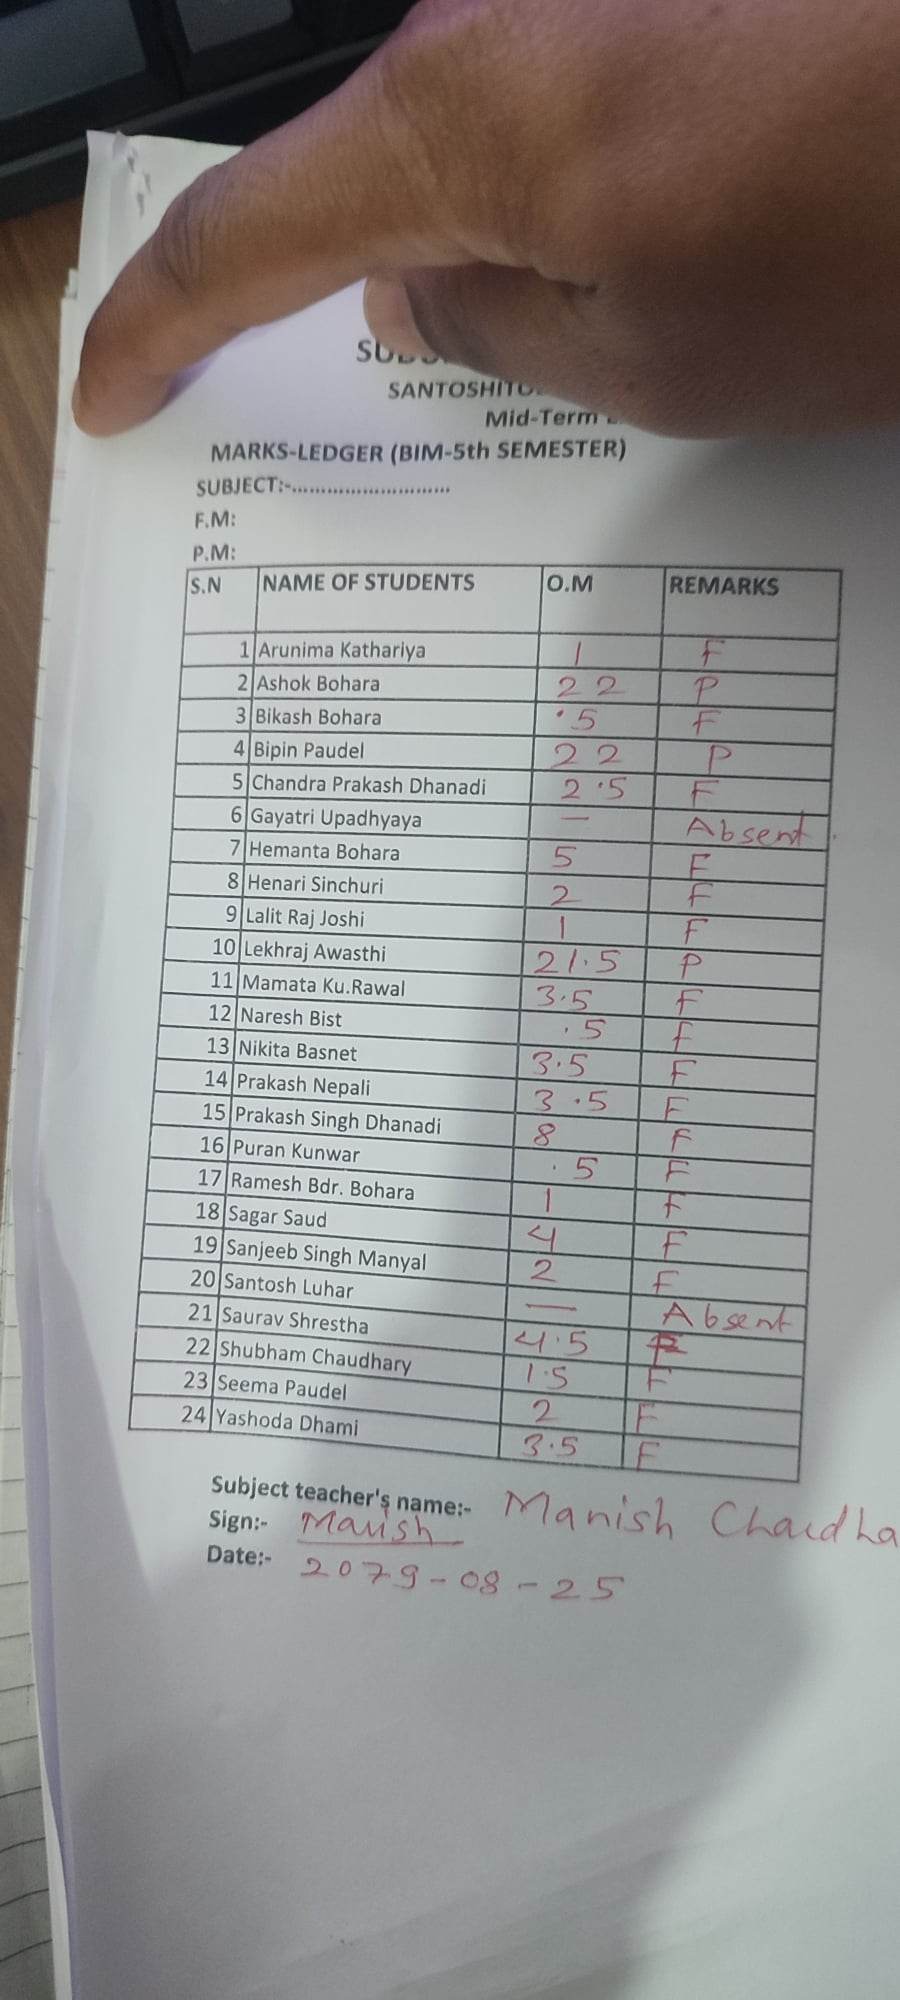 SANTOSHITO
Mid-Term
MARKS-LEDGER (BIM-5th SEMESTER)
SUBJECT:-...........................
F.M:
P.M:
S.N NAME OF STUDENTS O.M REMARKS
1 Arunima Kathariya 1 F
2 Ashok Bohara 22 P
3 Bikash Bohara .5 F
4 Bipin Paudel 22 P
5 Chandra Prakash Dhanadi 2.5 F
6 Gayatri Upadhyaya — Absent
7 Hemanta Bohara 5 F
8 Henari Sinchuri 2 F
9 Lalit Raj Joshi 1 F
10 Lekhraj Awasthi 21.5 P
11 Mamata Ku.Rawal 3.5 F
12 Naresh Bist .5 F
13 Nikita Basnet 3.5 F
14 Prakash Nepali 3.5 F
15 Prakash Singh Dhanadi 8 F
16 Puran Kunwar .5 F
17 Ramesh Bdr. Bohara 1 F
18 Sagar Saud 4 F
19 Sanjeeb Singh Manyal 2 F
20 Santosh Luhar — Absent
21 Saurav Shrestha 4.5 F
22 Shubham Chaudhary 1.5 F
23 Seema Paudel 2 F
24 Yashoda Dhami 3.5 F
Subject teacher's name:- Manish Chaudha
Sign:- Manish
Date:- 2079-08-25